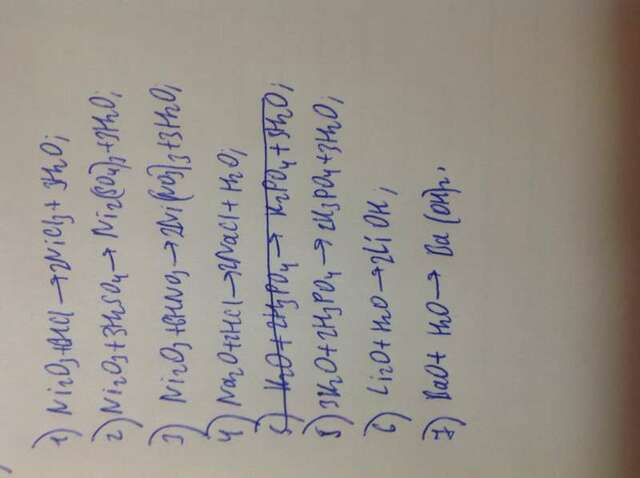 1) Ni2O3+6HCl →2NiCl3+ 3H2O;
2) Ni2O3+3H2SO4→ Ni2(SO4)3+3H2O;
3) Ni2O3+6HNO3→2Ni(NO3)3+3H2O;
4) Na2O+2HCl→2NaCl+ H2O;
5) K2O+2H3PO4→ K2PO4+3H2O;
5) 3K2O+2H3PO4→2K3PO4+3H2O;
6) Li2O+H2O→2LiOH;
7) BaO+ H2O→ Ba(OH)2.